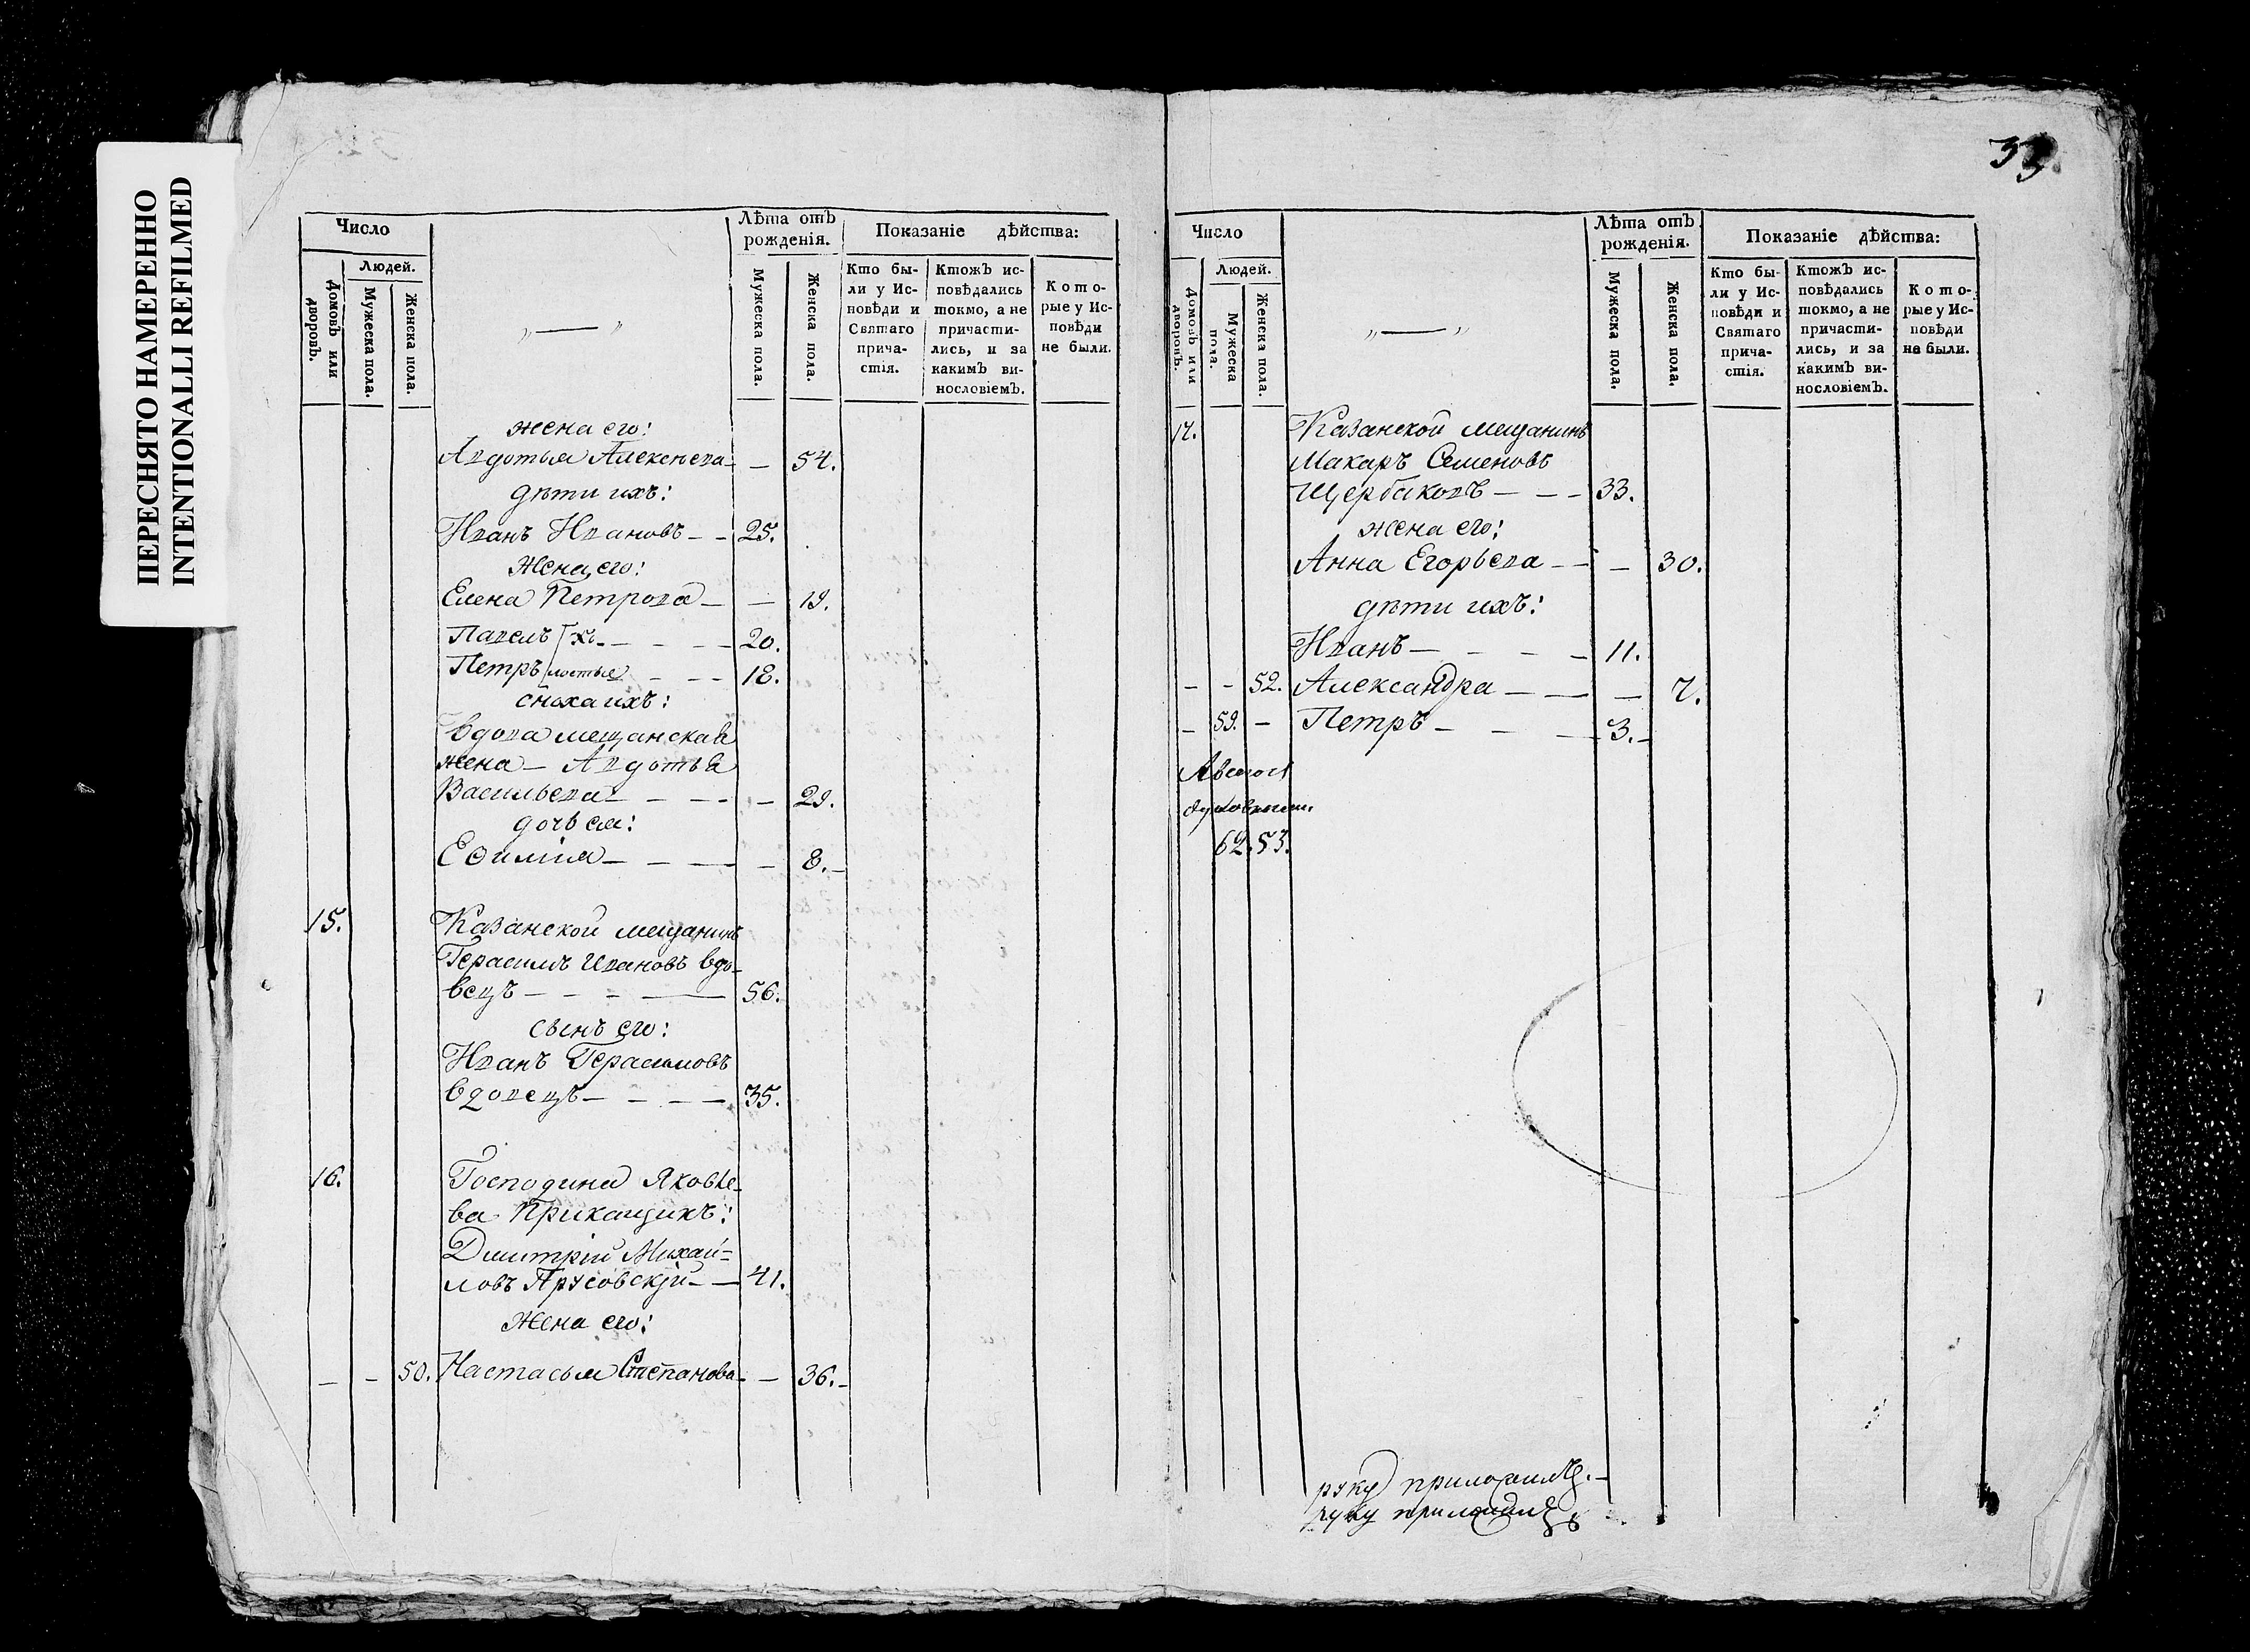 ПЕРЕСНЯТО НАМЕРЕННО
INTENTIONALLI REFILMED
Число
Лѣта отъ
рожденія.
Показаніе дѣйства:
Домовъ или
дворовъ.
Людей.
Мужеска пола.
Женска пола.
„ — „
Мужеска пола.
Женска пола.
Кто бы-
ли у Ис-
повѣди и
Святаго
прича-
стія.
Ктожъ ис-
повѣдались
токмо, а не
причасти-
лись, и за
какимъ ви-
нословіемъ.
Кото-
рые у Ис-
повѣди
не были.
жена его:
Авдотья Алексѣева — — 54.
дѣти ихъ:
Иванъ Ивановъ — — 25.
Жена его:
Елена Петрова — — 19.
Павелъ — — — 20.
Петръ — — — 18.
сноха ихъ:
вдова мещанская
жена — Авдотья
Васильева — — — — 29.
дочь ея:
Ефимія — — — — 8. —
15. Казанской мещанинъ
Герасимъ Ивановъ вдо-
вецъ — — — — 56.
сынъ его:
Иванъ Герасимовъ
вдовецъ — — — — 35.
16. Господина Яковле-
ва Прикащикъ:
Дмитрій Михай=
ловъ Прусовскій — — 41.
Жена его:
— — 50. Настасья Степанова — — 36. —
39
Число
Лѣта отъ
рожденія.
Показаніе дѣйства:
Домовъ или
дворовъ.
Людей.
Мужеска
пола.
Женска пола.
„ — „
Мужеска пола.
Женска пола.
Кто бы-
ли у Ис-
повѣди и
Святаго
прича-
стія.
Ктожъ ис-
повѣдались
токмо, а не
причасти-
лись, и за
какимъ ви-
нословіемъ.
Кото-
рые у Ис-
повѣди
не были.
17. Казанской мещанинъ
Макаръ Семеновъ
Щербаковъ — — — 33.
жена его:
Анна Егорьева — — — 30.
дѣти ихъ:
Иванъ — — — — 11.
— — 52. Александра — — — 7.
— 59. — Петръ — — — 3. —
духовными.
62. 53.
руку приложилъ. —
руку приложилъ